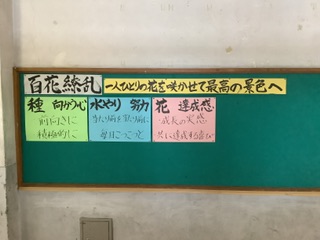 百花繚乱
一人ひとりの花を咲かせて最高の景色へ
種 向かう心
前向きに
積極的に
水やり 努力
毎日こつこつ
花 達成感
成長の実感
共に達成する喜び